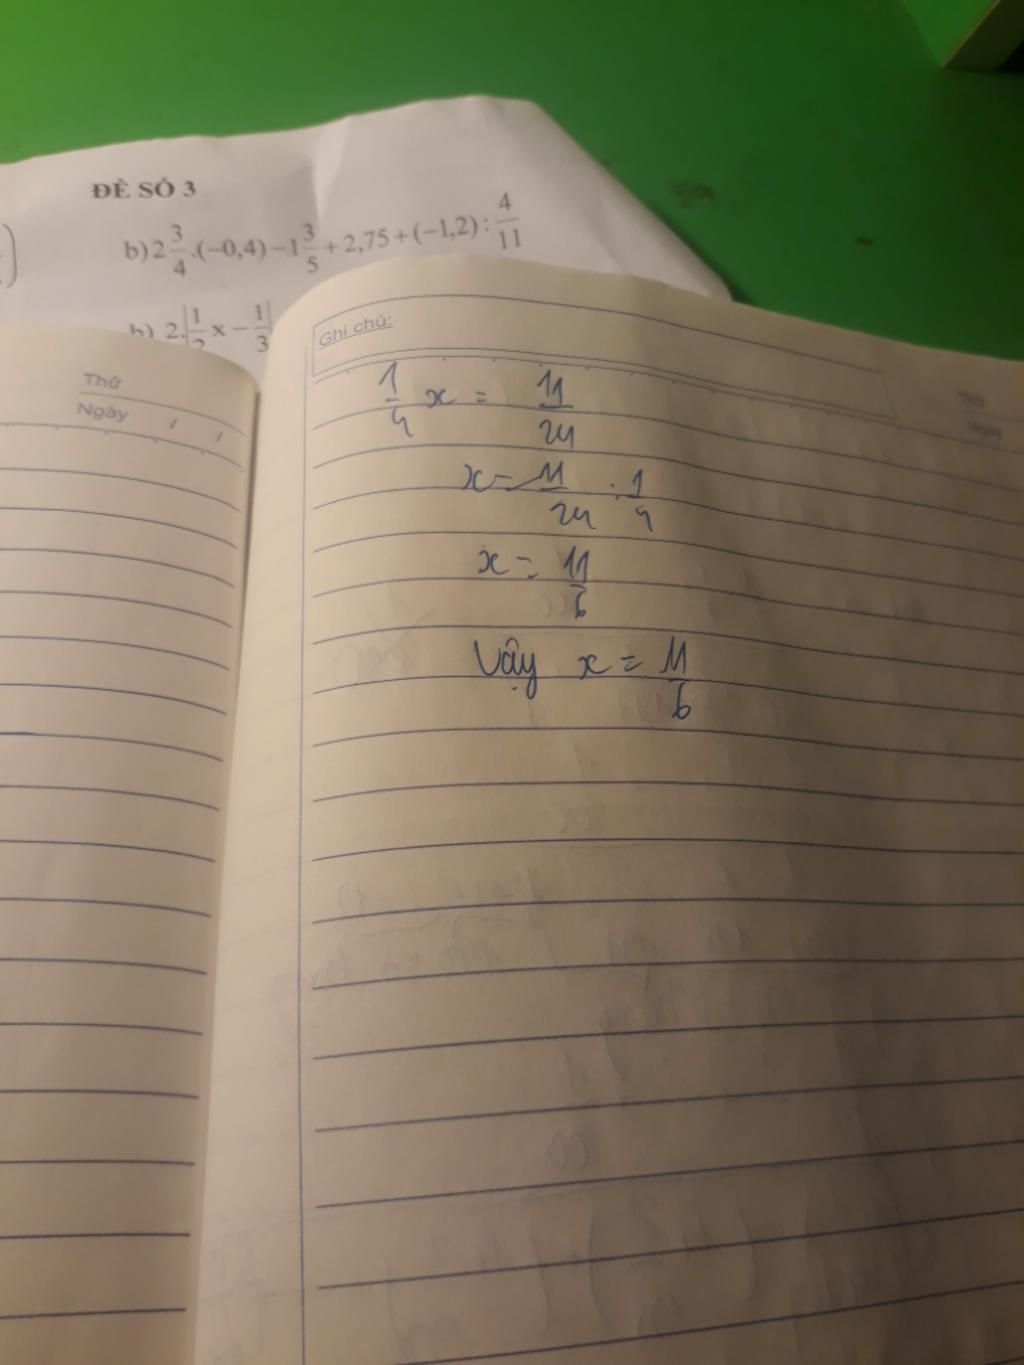 ĐỀ SỐ 3
b) 2 3/4 .(−0,4) − 1 3/5 + 2,75 + (−1,2) : 4/11
b) 2.|1/2 x − 1/3|
Thứ
Ngày / /
Ghi chú:
1/4 x = 11/24
x = 11/24 : 1/4
x = 11/6
Vậy x = 11/6